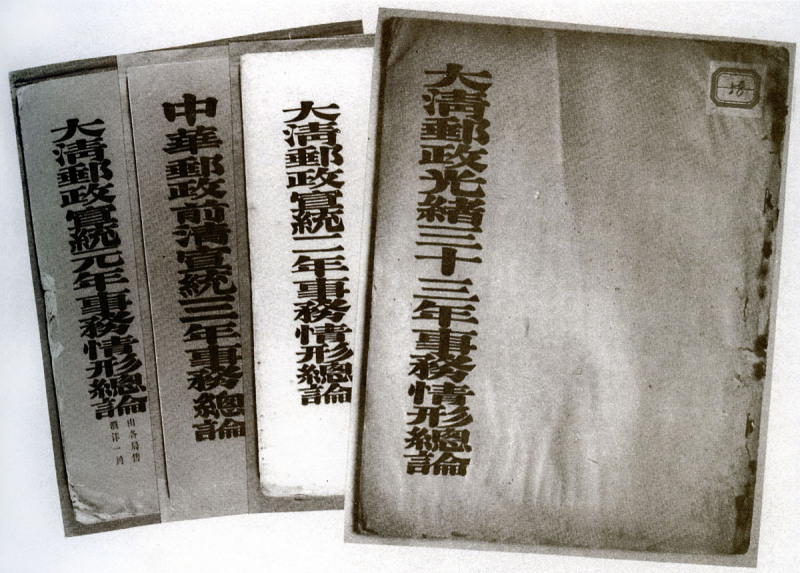 大清郵政光緒三十三年事務情形總論
大清郵政宣統二年事務情形總論
中華郵政前清宣統三年事務總論
大清郵政宣統元年事務情形總論
由各局售
價洋一角